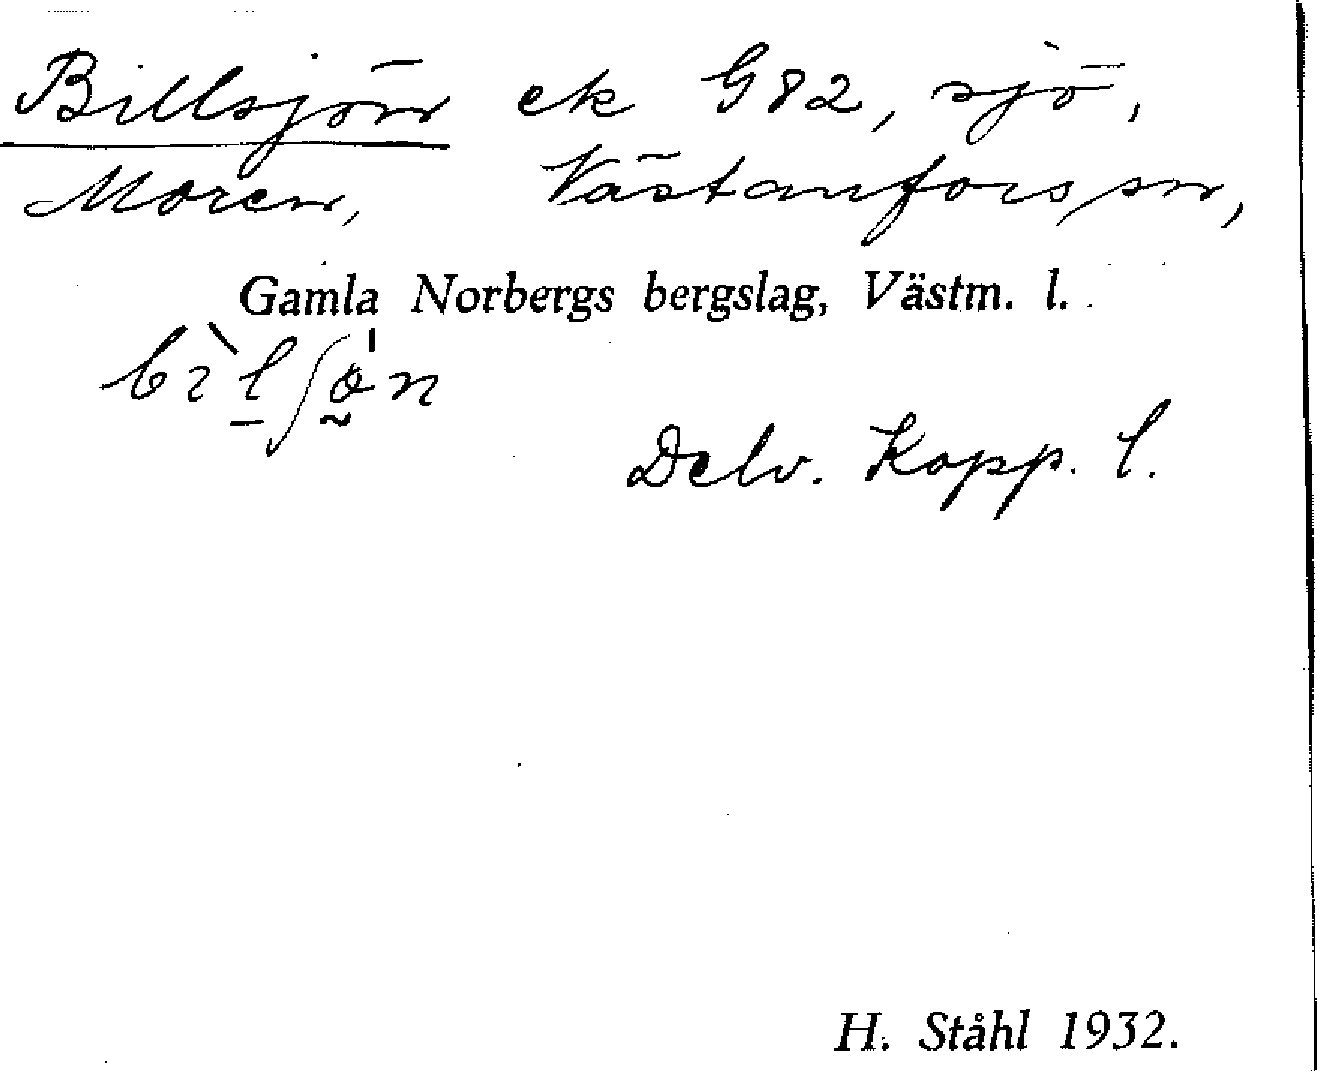 Billsjön ek G82, sjö,
Moren, Västanfors sn,
Gamla Norbergs bergslag, Västm. l.
bìlʃø̰n
Delv. Kopp. l.
H. Ståhl 1932.